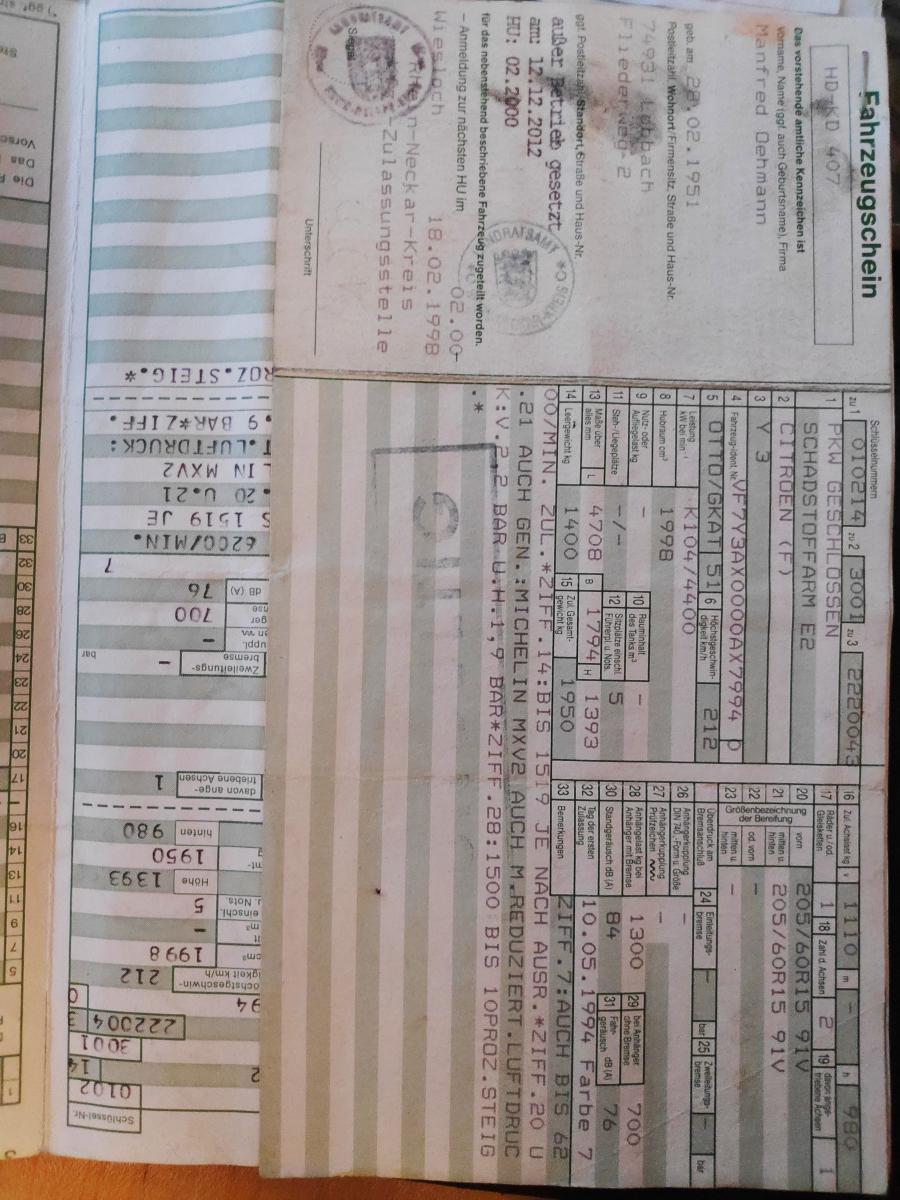 Fahrzeugschein
HD-KD 407
Das vorstehende amtliche Kennzeichen ist
Vorname, Name (ggf. auch Geburtsname), Firma
Manfred Oehmann
geb. am 28.02.1951
Postleitzahl, Wohnort/Firmensitz, Straße und Haus-Nr.
74931 Lobbach
Fliederweg 2
ggf. Postleitzahl, Standort, Straße und Haus-Nr.
außer Betrieb gesetzt
am: 12.12.2012
HU: 02.2000
für das nebenstehend beschriebene Fahrzeug zugeteilt worden.
– Anmeldung zur nächsten HU im 02.00
Wiesloch 18.02.1998
Rhein-Neckar-Kreis
-Zulassungsstelle
Siegel
Unterschrift
Schlüsselnummern
zu 1 010214 zu 2 3001 zu 3 2220043
1 PKW GESCHLOSSEN
SCHADSTOFFARM E2
2 CITROEN (F)
3 Y 3
4 Fahrzeug-Ident.-Nr. VF7Y3AX0000AX7994 0
5 OTTO/GKAT 51 6 Höchstgeschwin-digkeit km/h 212
7 Leistung kW bei min⁻¹ K104/4400
8 Hubraum cm³ 1998
9 Nutz- oder Aufliegelast kg – 10 Rauminhalt des Tanks m³ –
11 Steh-/Liegeplätze -/- 12 Sitzplätze einschl. Führerpl. u. Nots. 5
13 Maße über alles mm L 4708 B 1794 H 1393
14 Leergewicht kg 1400 15 Zul. Gesamt-gewicht kg 1950
16 Zul. Achslast kg v 1110 m – h 980
17 Räder u./od. Gleisketten 1 18 Zahl d. Achsen 2 19 davon ange-triebene Achsen 1
Größenbezeichnung der Bereifung
20 vorn 205/60R15 91V
21 mitten u. hinten 205/60R15 91V
22 od. vorn –
23 mitten u. hinten –
Überdruck am Bremsanschluß 24 Einleitungs-bremse – bar 25 Zweileitungs-bremse – bar
26 Anhängerkupplung DIN 740.., Form u. Größe –
27 Anhängerkupplung Prüfzeichen –
28 Anhängelast kg bei Anhänger mit Bremse 1300 29 bei Anhänger ohne Bremse 700
30 Standgeräusch dB (A) 84 31 Fahr-geräusch dB (A) 76
32 Tag der ersten Zulassung 10.05.1994 Farbe 7
33 Bemerkungen ZIFF.7:AUCH BIS 62
00/MIN. ZUL.*ZIFF.14:BIS 1519 JE NACH AUSR.*ZIFF.20 U
.21 AUCH GEN.:MICHELIN MXV2 AUCH M.REDUZIERT.LUFTDRUC
K:V.2,2 BAR U.H.1,9 BAR*ZIFF.28:1500 BIS 10PROZ.STEIG
.*
Schlüssel-Nr.
0102
14
3001
222004
94
212
1998
5
Höhe 1393
1950
hinten 980
davon ange-
triebene Achsen 1
Zweileitungs-
bremse – bar
–
700
dB (A) 76
7
6200/MIN.
S 1519 JE
. 20 U.21
LIN MXV2
T.LUFTDRUCK:
.9 BAR*ZIFF.
ROZ.STEIG.*